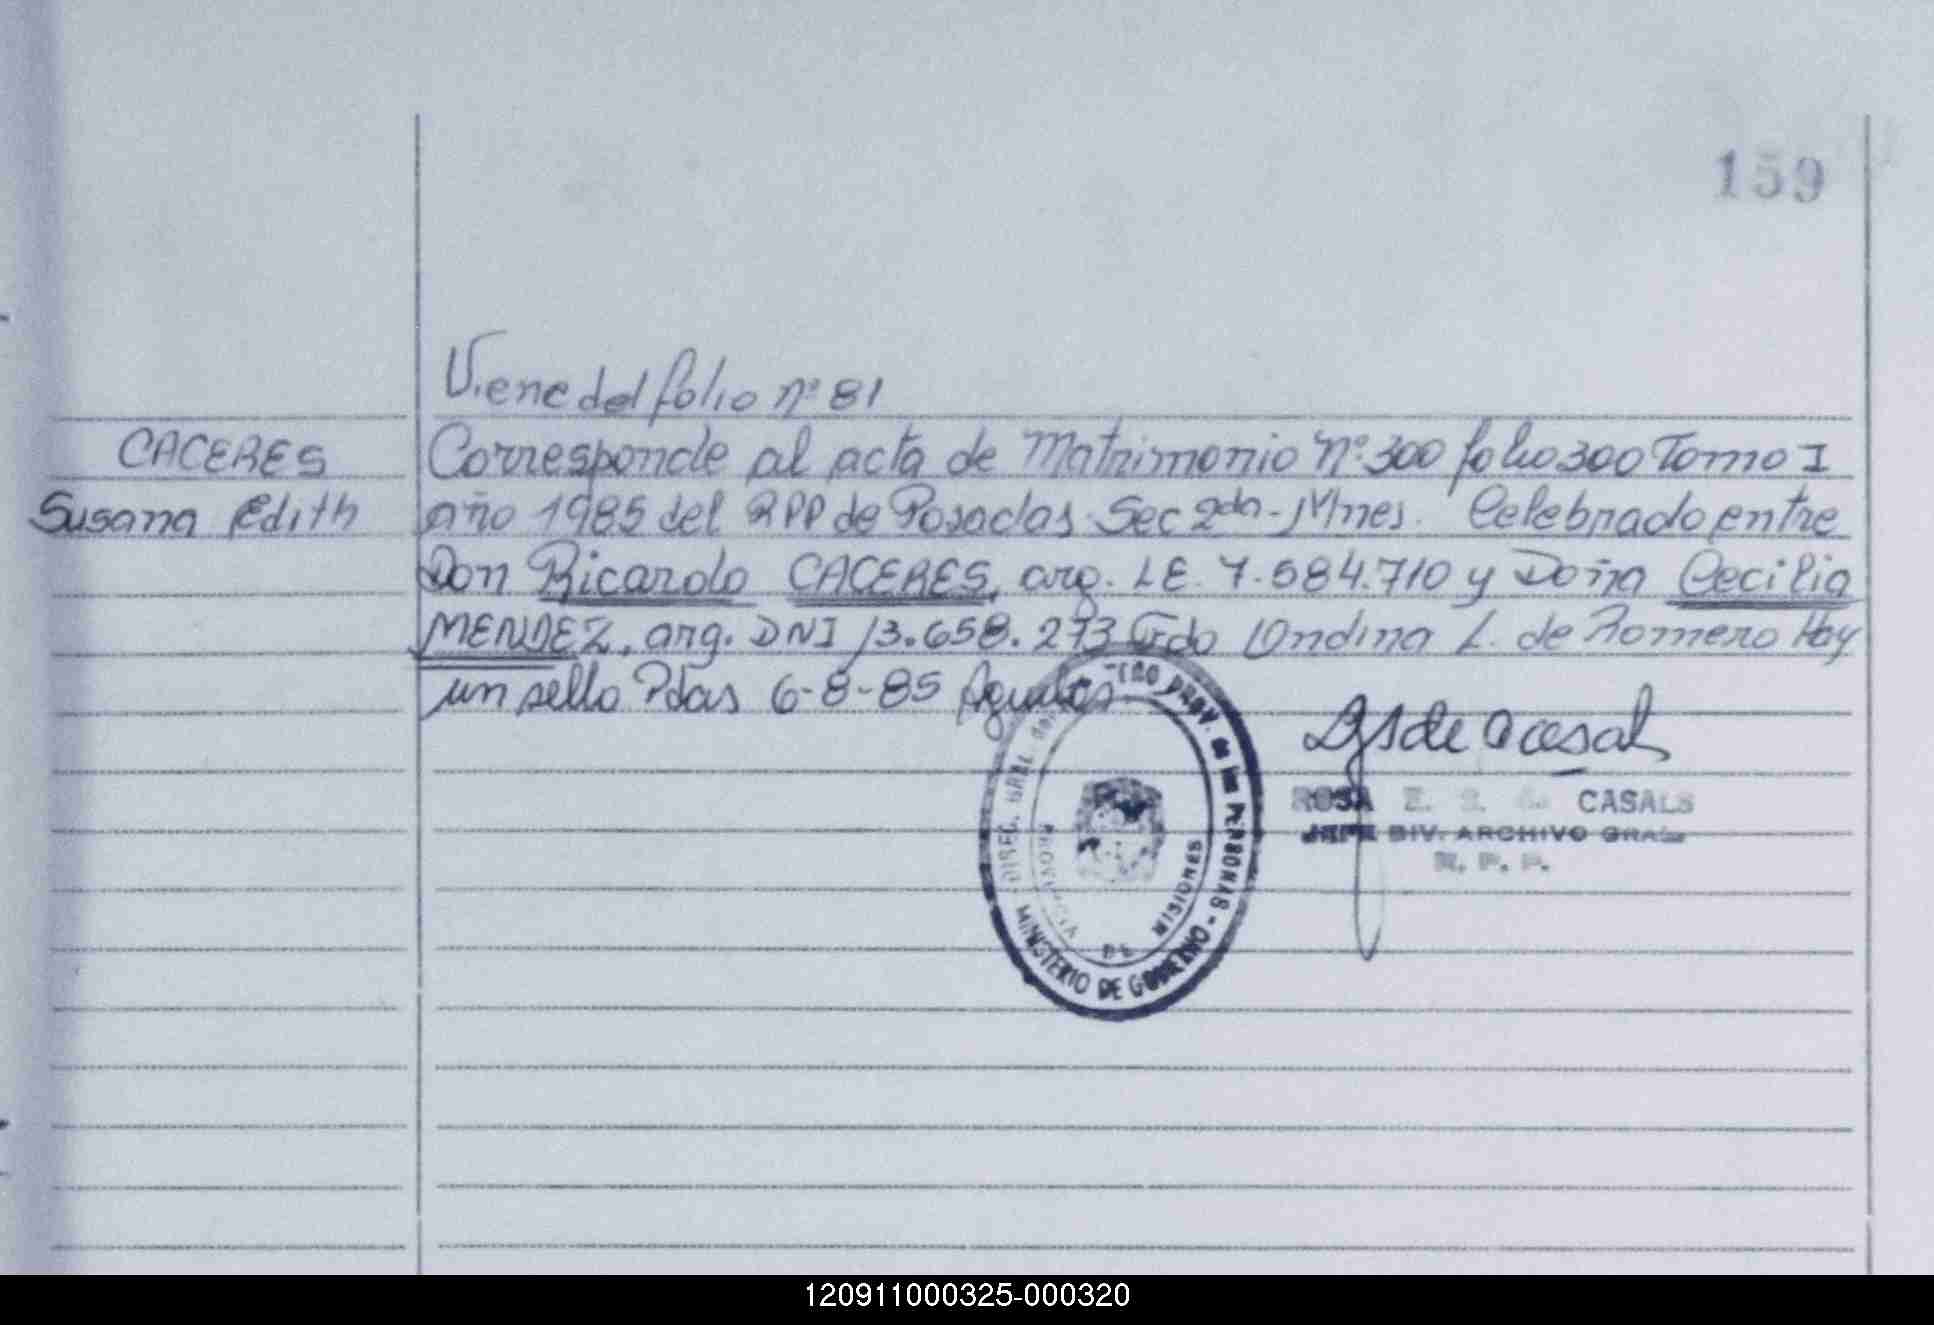 159
Viene del folio nº 81
CACERES
Susana Edith
Corresponde al acta de Matrimonio Nº 300 folio 300 Tomo I
año 1985 del RPP de Posadas Sec 2da - Mnes. Celebrado entre
Don Ricardo CACERES, arg. LE. 7.584.710 y Doña Cecilia
MENDEZ, arg. DNI 13.658.273 Fdo Ondina L. de Romero Hay
un sello Pdas 6-8-85
ROSA E. S. de CASALS
JEFE DIV. ARCHIVO GRAL
R. P. P.
DIREC. GRAL. PROV. de las PERSONAS -
MINISTERIO DE GOBIERNO -
PROVINCIA DE MISIONES
120911000325-000320